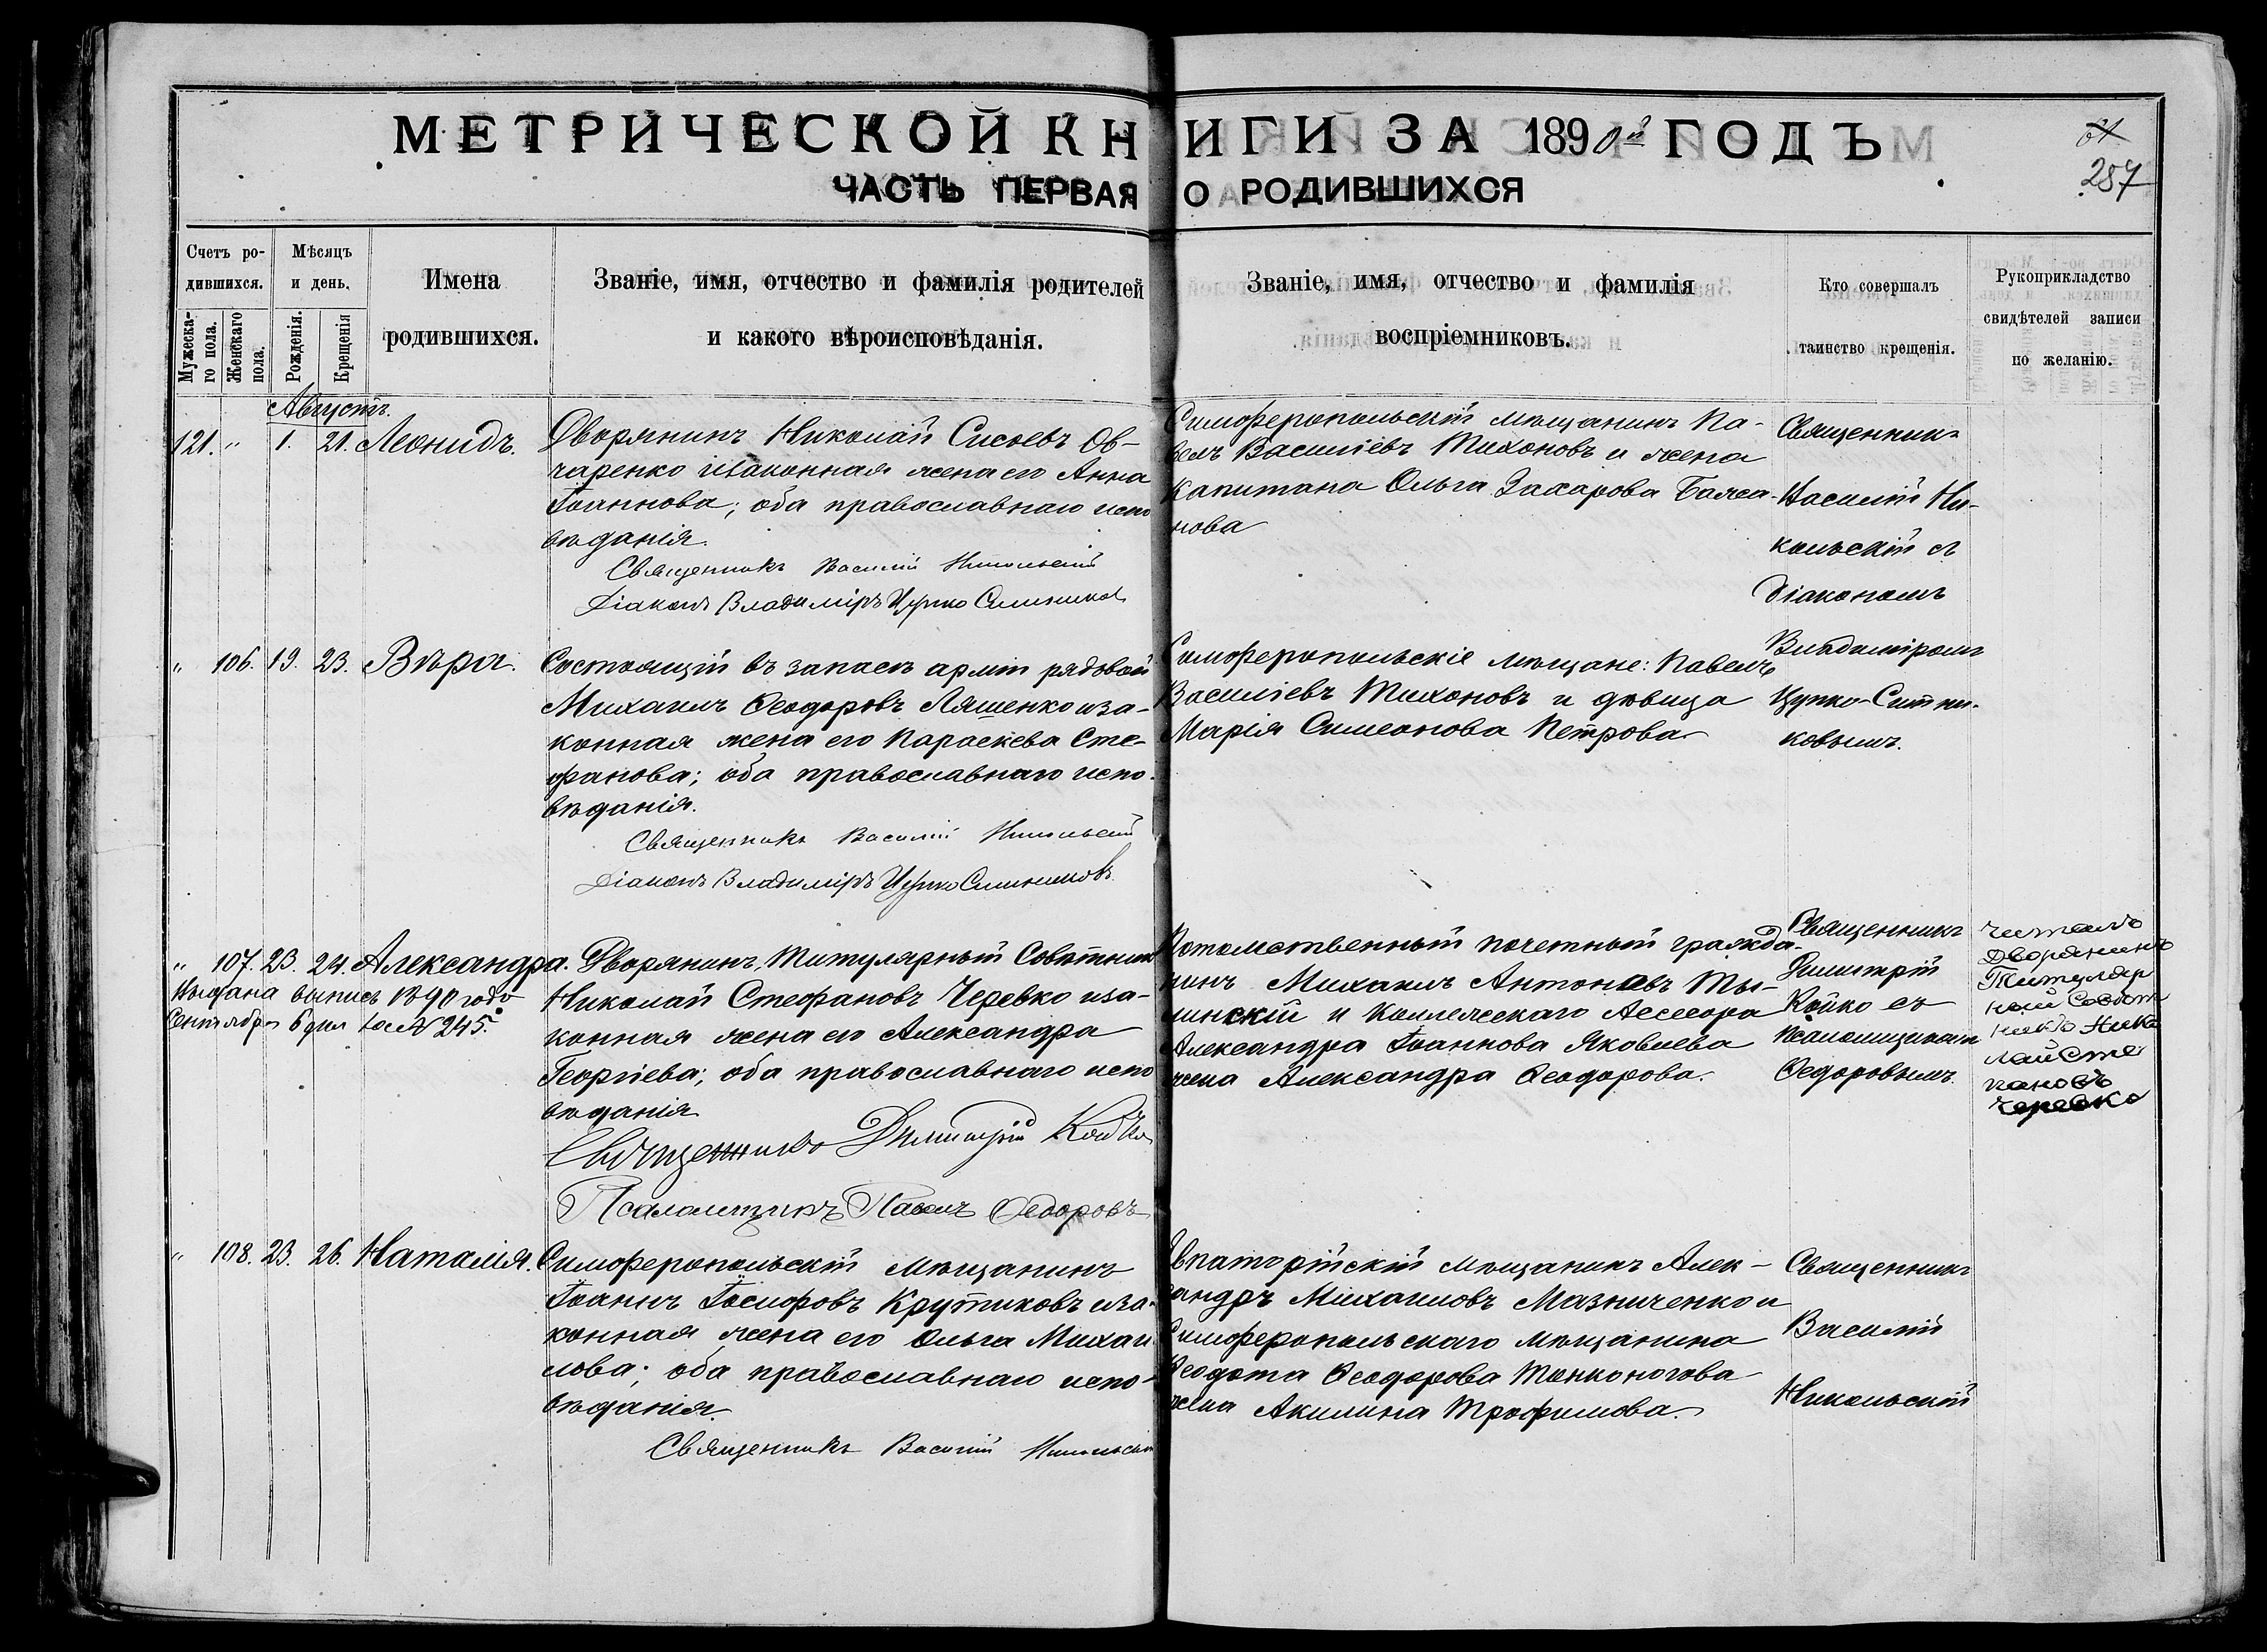 МЕТРИЧЕСКОЙ КНИГИ ЗА 1890й ГОДЪ
ЧАСТЬ ПЕРВАЯ О РОДИВШИХСЯ
287
Счетъ ро-
дившихся.
Мужеска-
го пола.
Женскаго
пола.
Мѣсяцъ
и день.
Рожденія.
Крещенія
Имена
родившихся.
Званіе, имя, отчество и фамилія родителей
и какого вѣроисповѣданія.
Званіе, имя, отчество и фамилія
воспріемниковъ.
Кто совершалъ
таинство крещенія.
Рукоприкладство
свидѣтелей записи
по желанію.
Августъ.
121. " 1. 21. Леонидъ.
Дворянинъ Николай Сисоевъ Ов-
чаренко и законная жена его Анна
Іоаннова; оба православнаго испо
вѣданія.
Священникъ Василій Никольскій
Діаконъ Владиміръ Цупко Ситников
Симферопольскій мѣщанинъ Па-
велъ Василіевъ Тихоновъ и жена
Капитана Ольга Захарова Бажа-
нова
Священникъ
Василій Ни-
кольскій съ
Діакономъ
Владиміромъ
Цупко-Ситни-
ковымъ.
" 106. 19. 23. Вѣра.
Состоящій въ запасѣ арміи рядовой
Михаилъ Ѳеодоровъ Ляшенко и за-
конная жена его Параскева Сте-
фанова; оба православнаго испо-
вѣданія.
Священникъ Василій Никольскій
Діаконъ Владиміръ Цупко Ситниковъ
Симферопольскіе мѣщане: Павелъ
Василіевъ Тихоновъ и дѣвица
Марія Симеонова Петрова
" 107. 23. 24. Александра.
выпись 1890 года
Сентября 6 дня за № 245.
Дворянинъ, Титулярный Совѣтникъ
Николай Стефановъ Черевко и за-
конная жена его Александра
Георгіева; оба православнаго испо
вѣданія
Священникъ Димитрій Койко
Псаломщикъ Павелъ Ѳедоровъ
Потомственный почетный гражда-
нинъ Михаилъ Антоновъ Ты-
линскій и Коллежскаго Асессора
Александра Іоаннова Яковлева
жена Александра Ѳеодорова.
Священникъ
Димитрій
Койко съ
псаломщикомъ
Ѳедоровымъ.
Читалъ
Дворянинъ
Титуляр
ный Совѣт
никъ Нико
лай Сте
пановъ
Черевко
" 108. 23. 26. Наталія.
Симферопольскій мѣщанинъ
Іоаннъ Іосифовъ Крутиковъ и за-
конная жена его Ольга Михаи
лова; оба православнаго испо-
вѣданія.
Священникъ Василій Никольскій
Евпаторійскій мѣщанинъ Алек-
сандръ Михаиловъ Мазниченко и
Симферопольскаго мѣщанина
Ѳеодота Ѳеодорова Тонконогова
жена Акилина Трофимова.
Священникъ
Василій
Никольскій